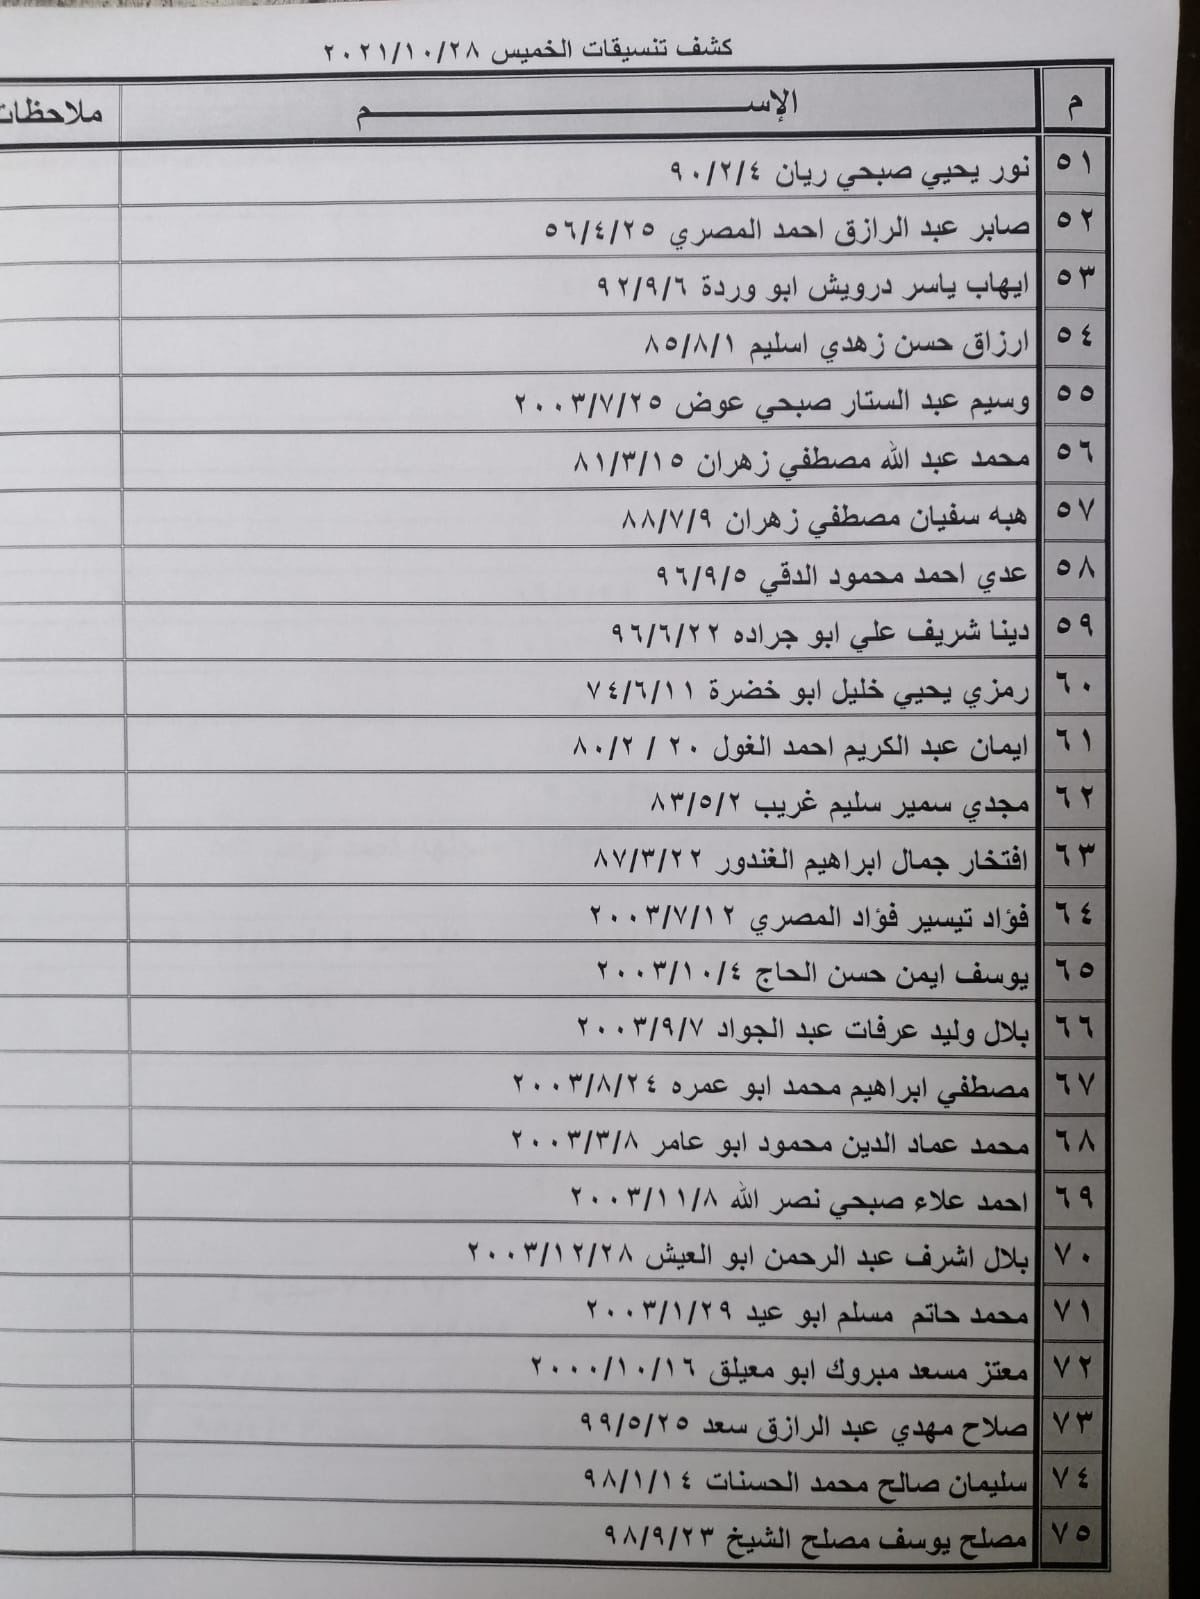 كشف تنسيقات الخميس ٢٠٢١/١٠/٢٨
م الإســـــــــــــــــــــــم ملاحظات
٥١ نور يحيي صبحي ريان ٩٠/٢/٤
٥٢ صابر عبد الرازق احمد المصري ٥٦/٤/٢٥
٥٣ ايهاب ياسر درويش ابو وردة ٩٢/٩/٦
٥٤ ارزاق حسن زهدي اسليم ٨٥/٨/١
٥٥ وسيم عبد الستار صبحي عوض ٢٠٠٣/٧/٢٥
٥٦ محمد عبد الله مصطفي زهران ٨١/٣/١٥
٥٧ هبه سفيان مصطفي زهران ٨٨/٧/٩
٥٨ عدي احمد محمود الدقي ٩٦/٩/٥
٥٩ دينا شريف علي ابو جراده ٩٦/٦/٢٢
٦٠ رمزي يحيي خليل ابو خضرة ٧٤/٦/١١
٦١ ايمان عبد الكريم احمد الغول ٢٠ / ٨٠/٢
٦٢ مجدي سمير سليم غريب ٨٣/٥/٢
٦٣ افتخار جمال ابراهيم الغندور ٨٧/٣/٢٢
٦٤ فؤاد تيسير فؤاد المصري ٢٠٠٣/٧/١٢
٦٥ يوسف ايمن حسن الحاج ٢٠٠٣/١٠/٤
٦٦ بلال وليد عرفات عبد الجواد ٢٠٠٣/٩/٧
٦٧ مصطفي ابراهيم محمد ابو عمره ٢٠٠٣/٨/٢٤
٦٨ محمد عماد الدين محمود ابو عامر ٢٠٠٣/٣/٨
٦٩ احمد علاء صبحي نصر الله ٢٠٠٣/١١/٨
٧٠ بلال اشرف عبد الرحمن ابو العيش ٢٠٠٣/١٢/٢٨
٧١ محمد حاتم مسلم ابو عيد ٢٠٠٣/١/٢٩
٧٢ معتز مسعد مبروك ابو معيلق ٢٠٠٠/١٠/١٦
٧٣ صلاح مهدي عبد الرازق سعد ٩٩/٥/٢٥
٧٤ سليمان صالح محمد الحسنات ٩٨/١/١٤
٧٥ مصلح يوسف مصلح الشيخ ٩٨/٩/٢٣